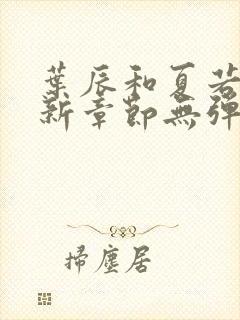 葉辰和夏若
新章節無彈
掃塵居